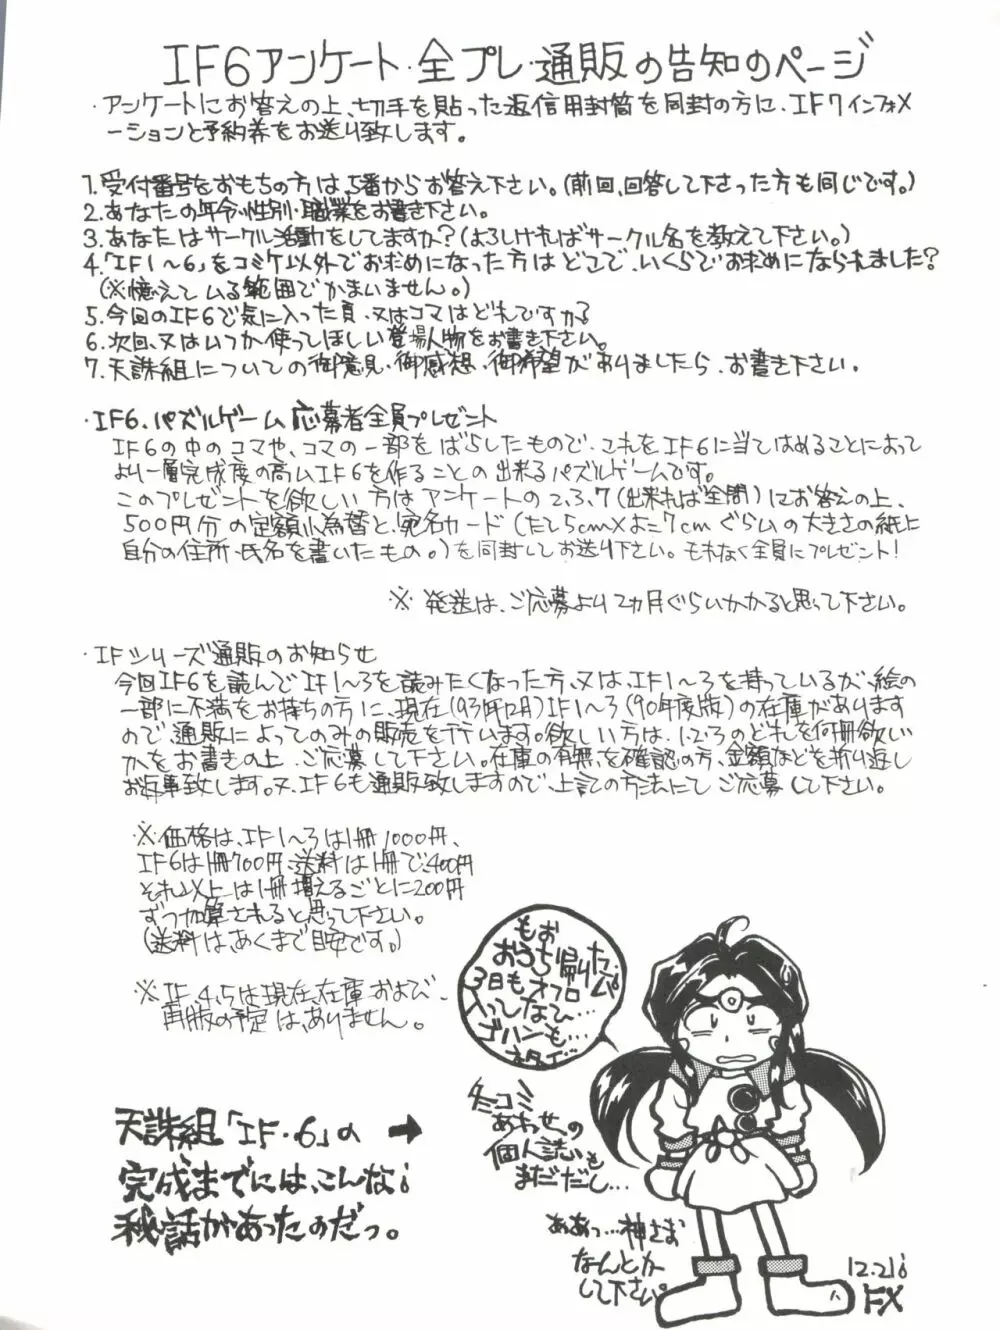 IF6アンケート・全プレ・通販の告知のページ
・アンケートにお答えの上、切手を貼った返信用封筒を同封の方に、IF7インフォメ
ーションと予約券をお送り致します。
1.受付番号をおもちの方は、5番からお答え下さい。(前回、回答して下さった方も同じです。)
2.あなたの年令・性別・職業をお書き下さい。
3.あなたはサークル活動をしてますか?(よろしければサークル名を教えて下さい。)
4.「IF1〜6」をコミケ以外でお求めになった方はどこで、いくらでお求めになられました?
(※憶えている範囲でかまいません。)
5.今回のIF6で気に入った頁、又はコマはどれですか?
6.次回、又はいつか使ってほしい登場人物をお書き下さい。
7.天誅組についての御意見・御感想・御希望がありましたら、お書き下さい。
・IF6.パズルゲーム応募者全員プレゼント
IF6の中のコマや、コマの一部をばらしたもので、これをIF6に当てはめることによって
より一層完成度の高いIF6を作ることの出来るパズルゲームです。
このプレゼントを欲しい方はアンケートの2、3、7(出来れば全問)にお答えの上、
500円分の定額小為替と、宛名カード(たて5cm×よこ7cmぐらいの大きさの紙に
自分の住所・氏名を書いたもの。)を同封してお送り下さい。もれなく全員にプレゼント!
※発送は、ご応募より2ヵ月ぐらいかかると思って下さい。
・IFシリーズ通販のお知らせ
今回IF6を読んでIF1〜3を読みたくなった方、又は、IF1〜3を持っているが、絵の
一部に不満をお持ちの方に、現在(93年12月)IF1〜3(90年度版)の在庫があります
ので、通販によってのみの販売を行います。欲しい方は、1.2.3のどれを何冊欲しい
かをお書きの上、ご応募して下さい。在庫の有無を確認の方、金額などを折り返し
お返事致します。又、IF6も通販致しますので、上記の方法にてご応募して下さい。
※価格は、IF1〜3は1冊1000円、
IF6は1冊700円、送料は1冊で、400円
それ以上は1冊増えるごとに200円
ずつ加算されると思って下さい。
(送料は、あくまで目安です。)
※IF.4.5は現在、在庫および、
再販の予定は、ありません。
もお
おうち帰りたい
3日もオフロ
入ってないし…
ゴハンも…
冬コミ
あわせの
個人誌も
まだだし…
ああっ…神さま
なんとか
して下さい。
天誅組「IF・6」の →
完成までには、こんな
秘話があったのだっ。
12.21
FX